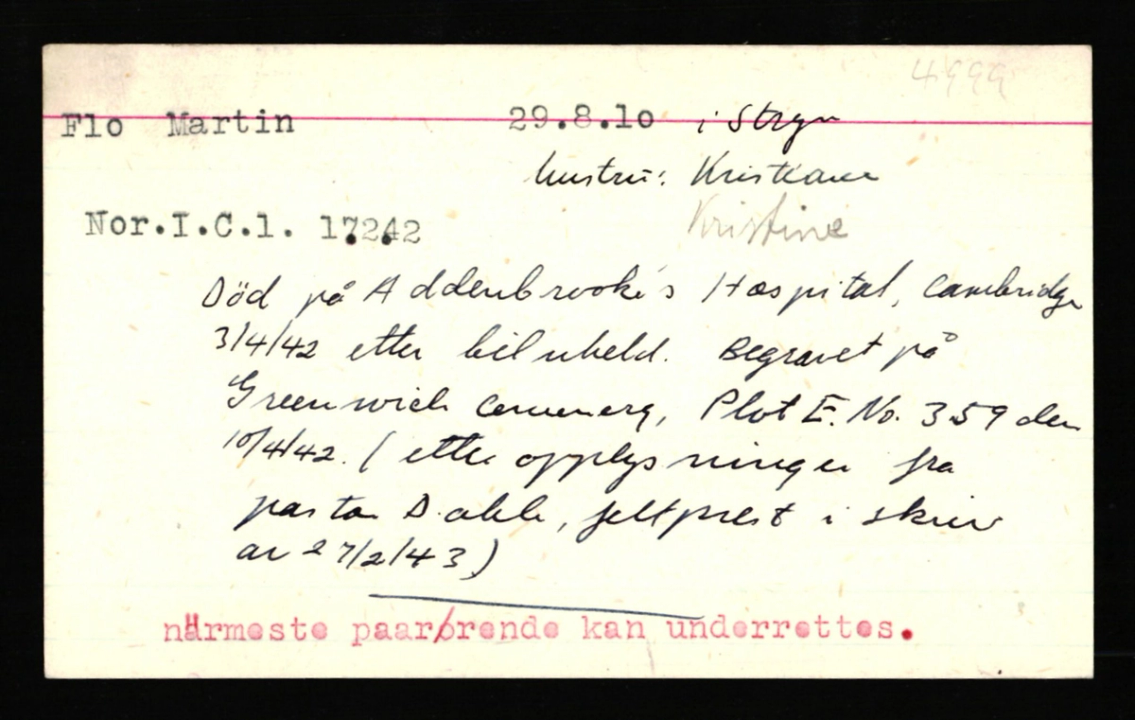 4999
Flo Martin 29.8.10 i Stryn
hustru: Kristiane
Kristine
Nor.I.C.1. 17242
Död på Addenbrooke's Hospital, Cambridge
3/4/42 etter biluheld. Begravet på
Greenwich Cemenery, Plot E. No. 359 den
10/4/42. (etter opplysninger fra
pastor Dahle, feltprest i skriv
av 27/2/43)
närmeste paarørende kan underrettes.